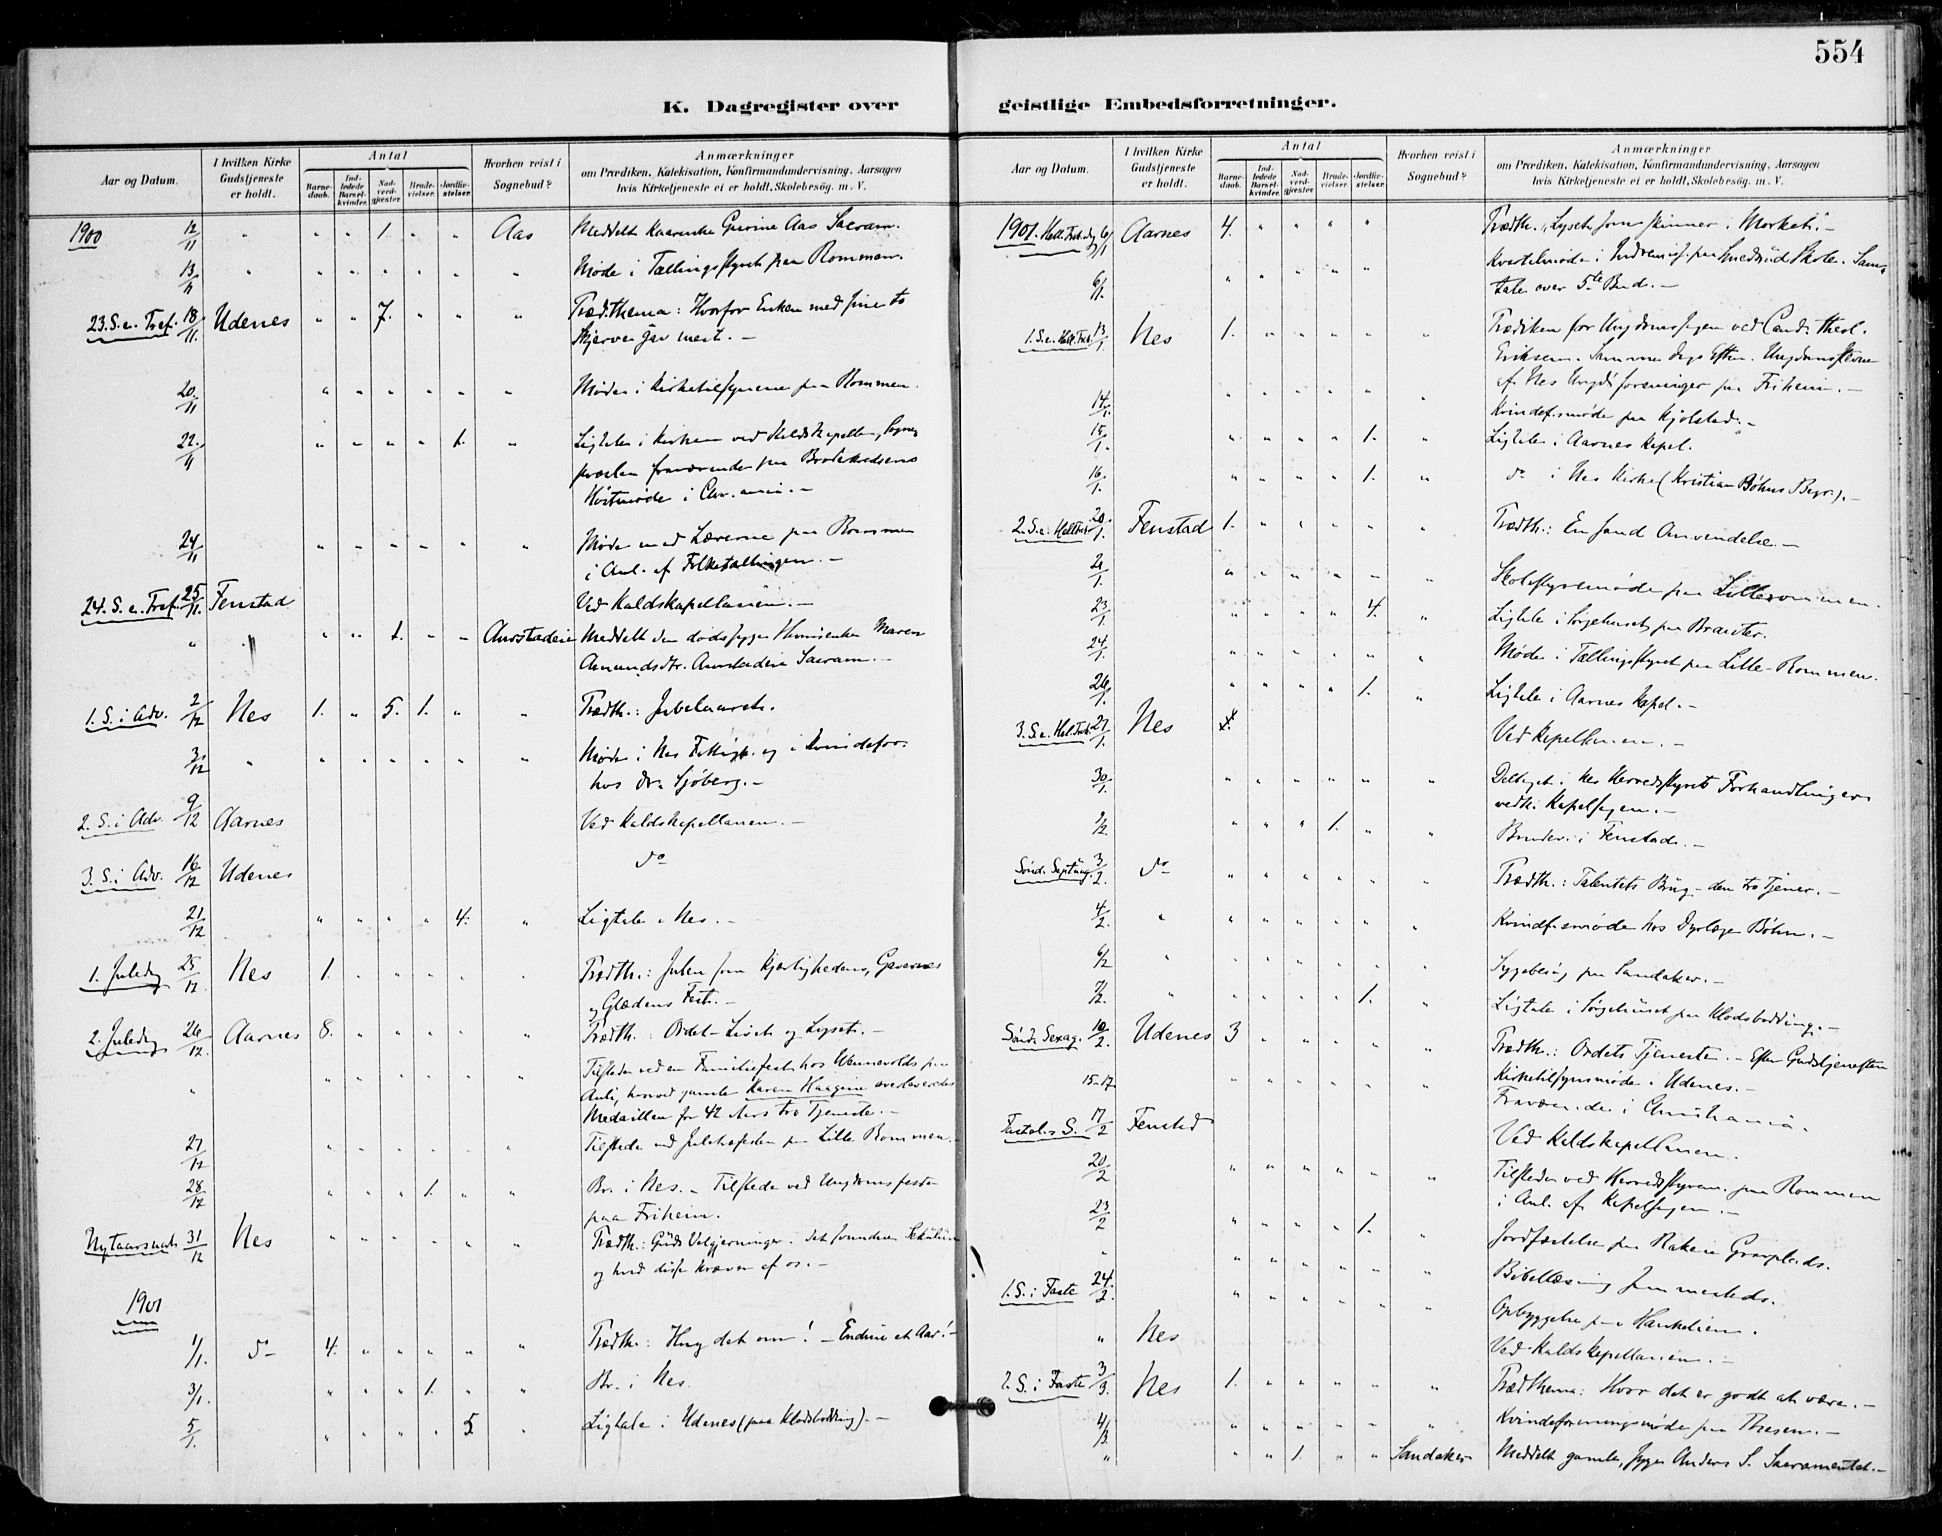 554
K. Dagregister over
geistlige Embedsforretninger.
Aar og Datum.
I hvilken Kirke
Gudstjeneste
er holdt.
Antal
Barne-
daab.
Ind-
ledede
Barsel-
kvinder.
Nad-
verd-
gjæster.
Brude-
vielser.
Jordfæ-
stelser.
Hvorhen reist i
Sognebud?
Anmærkninger
om Prædiken, Katekisation, Konfirmandundervisning, Aarsagen
hvis Kirketjeneste ei er holdt, Skolebesøg. m. V.
1900 12/11 " " " 1. " " Aas Meddelt Kaarenke Gurine Aas Sacram.
13/11 " " " " " " " Møde i Tællingsstyret paa Rommen.
23. S. e. Tref. 18/11. Udenes " " 7. " Præd.thema: Hvorfor Enken med sine to
Skjerver gav mest. —
20/11 " " " " " " Møde i Kirketilsynene paa Rommen.
22/11 " " " " 1. " Ligtale i Kirken ved Kaldskapellan, Sogne-
præsten fraværende paa Broderkredsens
Høstmøde i Chr.ania. —
24/11 " " " " " " Møde med Lærerne paa Rommen
i Anl. af Folketællingen. —
24. S. e. Tref. 25/11. Fenstad Ved Kaldskapellanen. —
" " " " 1. " " Aurstadeie Meddelt den dødssyge Huusenke Maren
Amundsdtr. Aurstadeie Sacram. —
1. S. i Adv. 2/12 Nes 1. " 5. 1. " " Prædth.: Jubelaaret.
3/12 " " " " " " " Møde i Nes Fattigk. og i Kvindefor.
hos Dr. Sjöberg. —
2. S. i Adv. 9/12 Aarnes Ved Kaldskapellanen. —
3. S. i Adv. 16/12 Udenes do
21/12 " " " " 4. " Ligtale i Nes. —
1. Juledag 25/12 Nes 1. " " " " " Prædth.: Julen som Kjærlighedens, Gavernes
og Glædens Fest. —
2. Juledag 26/12. Aarnes 8. " " " " " Prædth.: Ordet - Livet og Lyset. —
" " " " " " " Tilstede ved en Familiefest hos Wennevolds paa
Auli, hvorved gamle Karen Haagine overleveredes
Medaillen for 42 Aars tro Tjeneste. —
27/12 " " " " " " Tilstede ved Juletræfesten paa Lille Rommen.
28/12 " " " 1. " " Br. i Nes. — Tilstede ved Ungdomsfesten
paa Friheim.
Nytaarsaft. 31/12 Nes " " " " " " Prædth.: Guds Velgjerninger i det svundne Sekulum
og hvad disse kræver af os. —
1901
1/1. do 4. " " " " " Prædth.: Hug det om! — Endnu et Aar! —
3/1. " " " 1. " " Br. i Nes.
5/1. " " " " 5. " Ligtale i Udenes (paa Klodsbødding). —
Aar og Datum.
I hvilken Kirke
Gudstjeneste
er holdt.
Antal
Barne-
daab.
Ind-
ledede
Barsel-
kvinder.
Nad-
verd-
gjæster.
Brude-
vielser.
Jordfæ-
stelser.
Hvorhen reist i
Sognebud?
Anmærkninger
om Prædiken, Katekisation, Konfirmandundervisning, Aarsagen
hvis Kirketjeneste ei er holdt, Skolebesøg. m. V.
1901. Hell. Trek.dg 6/1 Aarnes 4. " " " " Prædth. "Lyset som skinner i Mørket". —
6/1. " " " " " Kvartalmøde i Indremis. paa Smedsrud Skole. Sam-
tale over 5te Bud. —
1. S. e. Hell. Trek. 13/1. Nes 1. " " " " " Prædiken for Ungdomssagen ved Cand. theol.
Eriksen. Samme Dags Efterm. Ungdomsstevne
af Nes Ungd.foreninger paa Friheim. —
14/1. " " " " " " Kvindef.møde paa Kjølstad. —
15/1. " " " " 1. " Ligtale i Aarnes Kapel.
16/1. " " " " 1. " do i Nes Kirke (Kristian Bøhns Begr.). —
2. S. e. Hell. Trek. 20/1. Fenstad 1. " " " " " Prædth.: En sand Omvendelse. —
21/1. " " " " " " Skolestyremøde paa Lillerommen.
23/1. " " " 4. " Ligtale i Sørgehuset paa Brauter.
24/1. " " " " " " Møde i Tællingsstyret paa Lille-Rommen.
26/1. " " " " 1. " Ligtale i Aarnes Kapel. —
3. S. e. Hel. Trek. 27/1. Nes Ved Kapellanen. —
30/1. " " " " " " Deltaget i Nes Herredsstyrets Forhandlinger
vedk. Kapelsagen. —
2/2 " " " 1. " " Brudev. i Fenstad. —
Sønd. Septuag. 3/2. do " " " " " " Prædth.: Talentets Brug - den tro Tjener. —
4/2. " " " " " " " Kvindf.smøde hos Dyrlæge Bøhn. —
6/2 " " " " " " " Sygebesøg paa Sandaker. —
7/2. " " " " " 1. " Ligtale i Sørgehuset paa Klodsbødding. —
Sønd. Sexag. 10/2. Udenes 3 " " " " " Prædth.: Ordets Tjeneste. — Efter Gudstjenesten
Kirketilsynsmøde i Udenes. —
15-17. " " " " " " Fraværende i Christiania.
Fastel. S. 17/2 Fenstad Ved Kaldskapellanen.
20/2 " " " " " " Tilstede ved Herredsstyrem. paa Rommen
i Anl. af Kapelsagen. —
23/2 " " " " 1. " Jordfæstelse paa Rakeie Gravplads.
" " " " " " " Bibellæsning sammesteds.
1. S. i Faste 24/2. " " " " " " Opbyggelse paa Haukelien.
" Nes Ved Kaldskapellanen. —
2. S. i Faste 3/3. Nes 1. " " " " " Prædthema: Hvor det er godt at være. —
4/3. " " " " " " Kvindeforeningsmøde paa Thesen. —
" " " 1. " " Sandaker Meddelt gamle, syge Anders S. Sacramentet. —